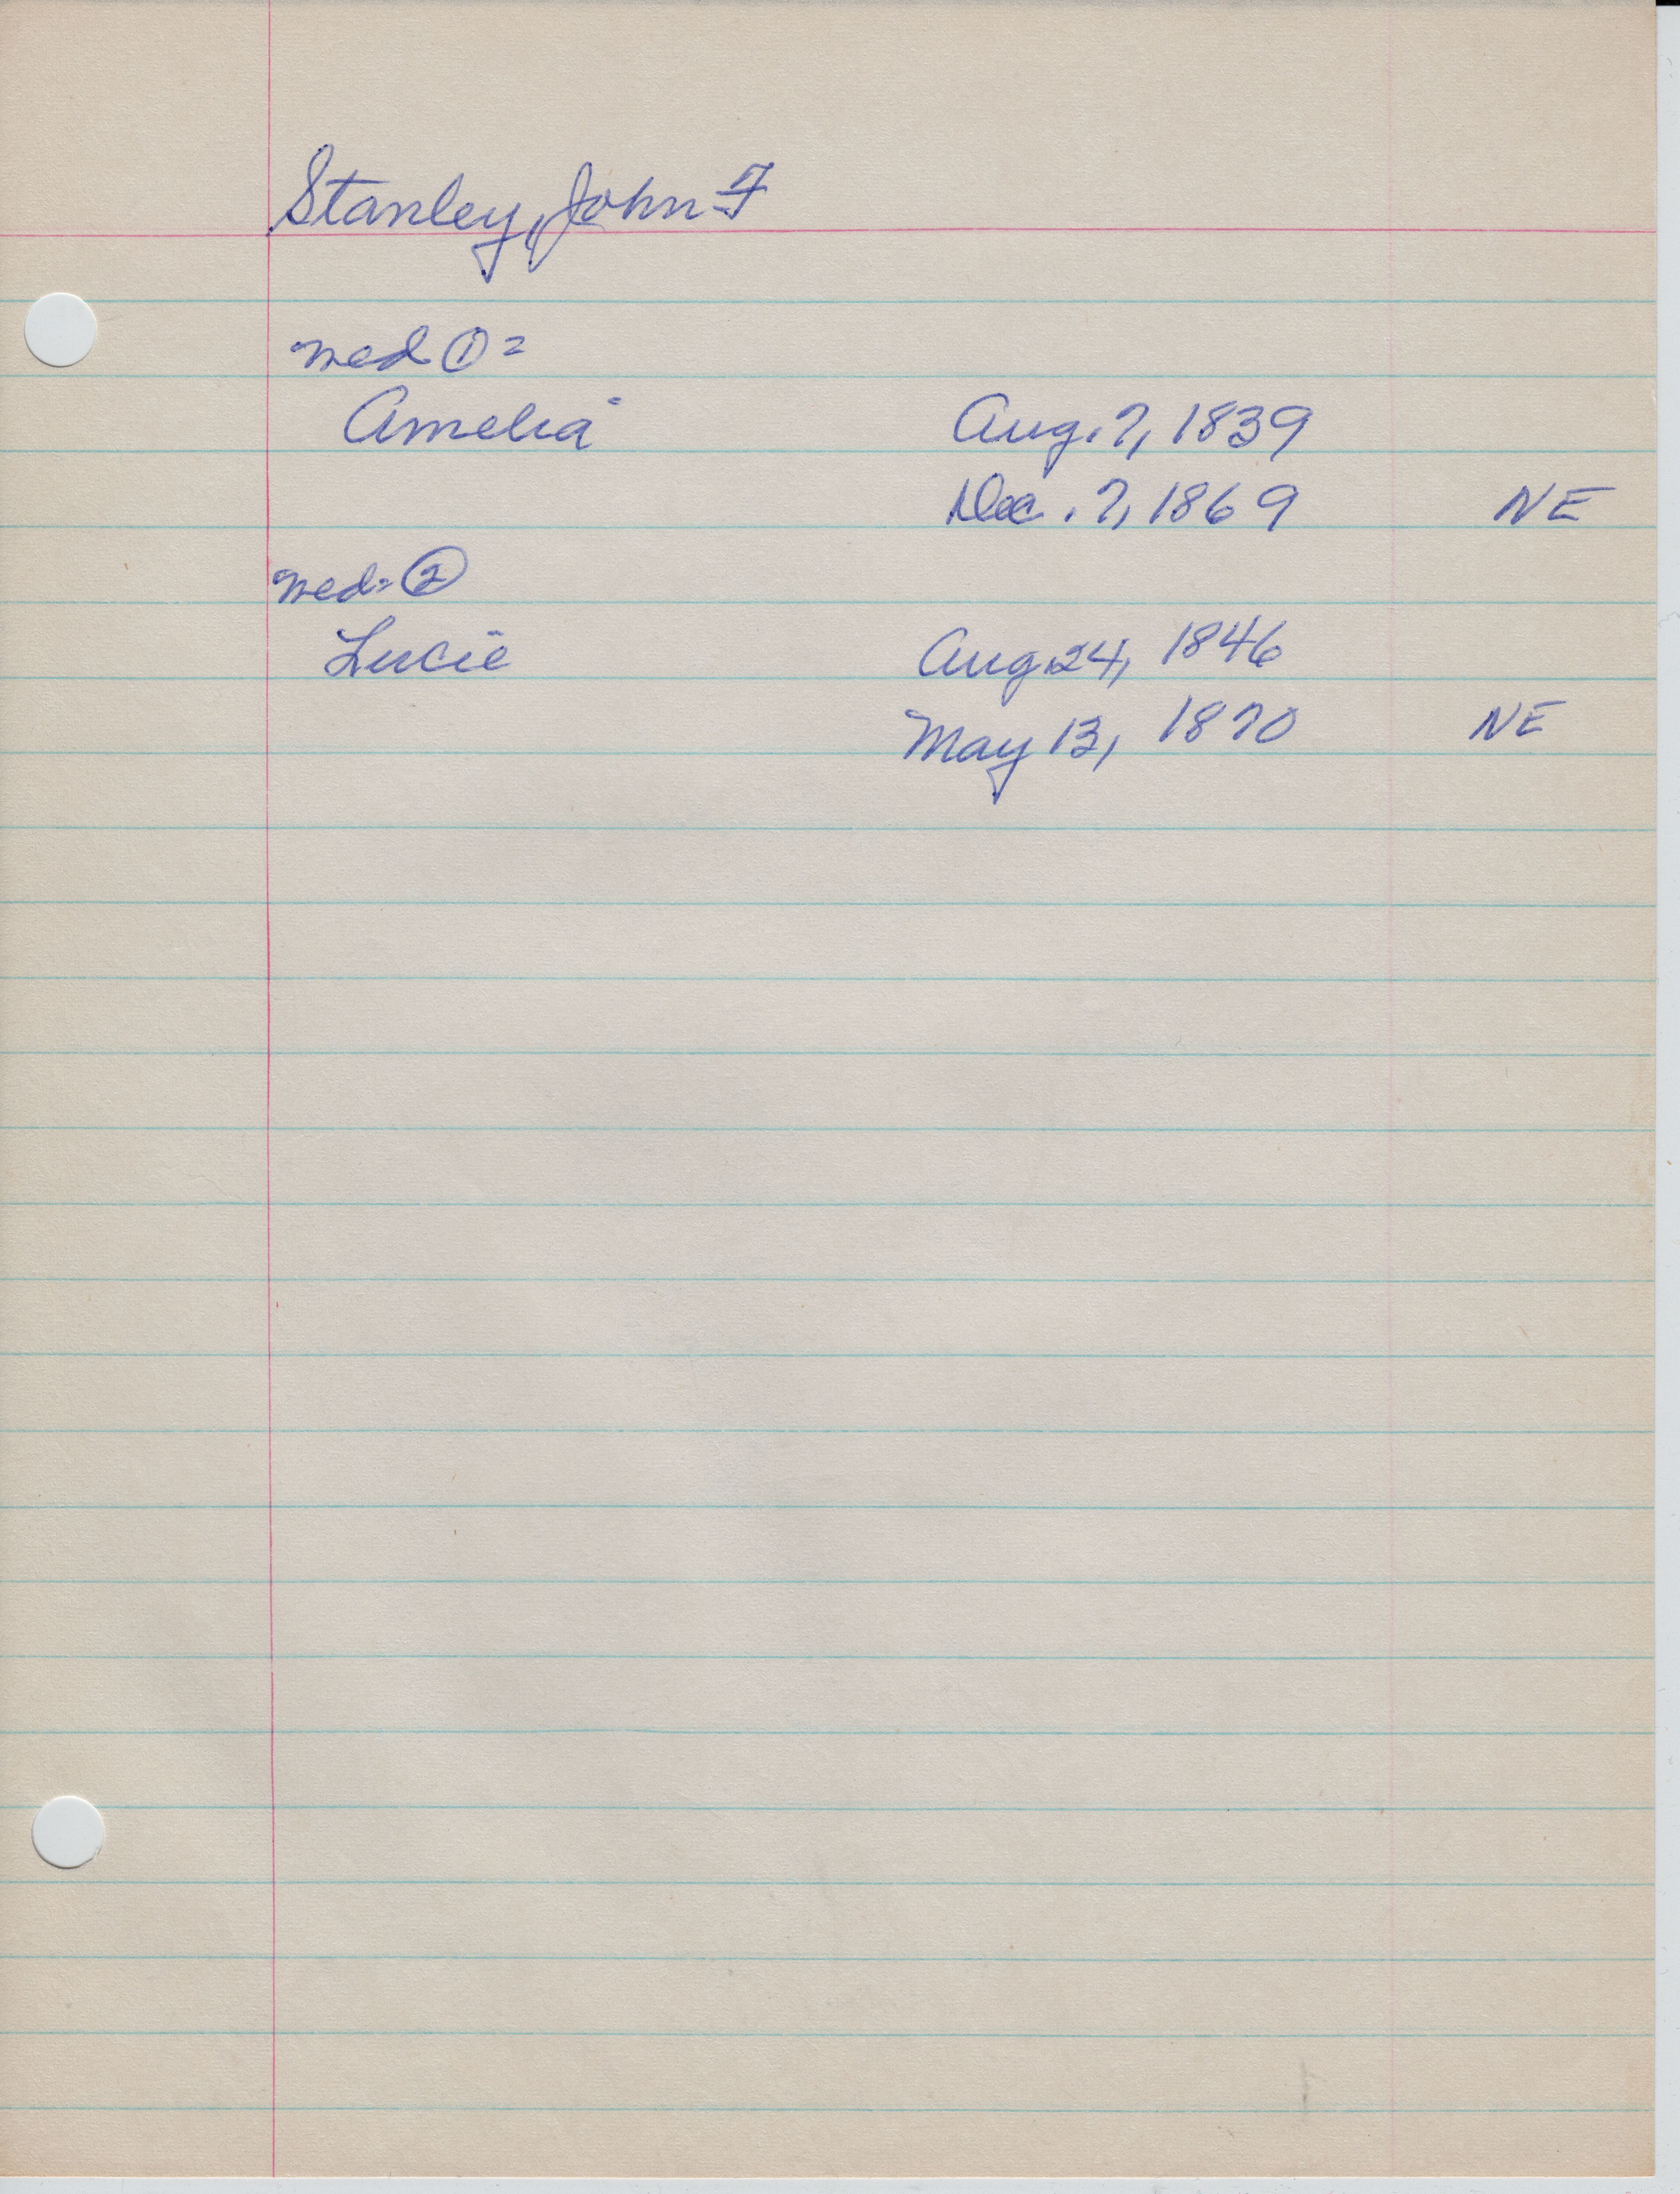 Stanley, John F
med ① =
Amelia
Aug. 7, 1839
Dec. 7, 1869 NE
med. ②
Lucie
Aug. 24, 1846
May 13, 1870 NE